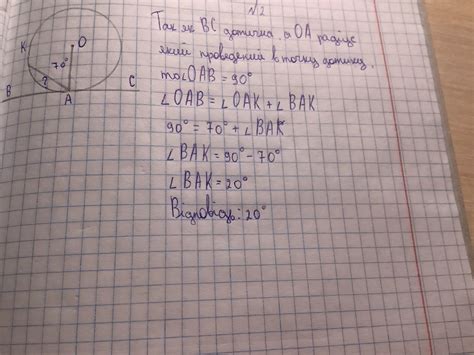 N2
Так як BC дотична, а OA радіус
який проведений в точку дотику,
то ∠OAB = 90°
∠OAB = ∠OAK + ∠BAK
90° = 70° + ∠BAK
∠BAK = 90° - 70°
∠BAK = 20°
Відповідь: 20°
K
O
70°
?
B
A
C